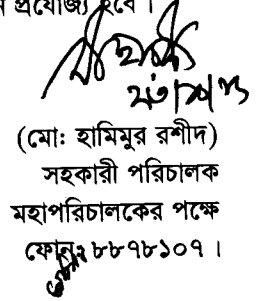 প্রযোজ্য হবে।
(মো: হামিমুর রশীদ)
সহকারী পরিচালক
মহাপরিচালকের পক্ষে
ফোন: ৮৮৭৮১০৭।